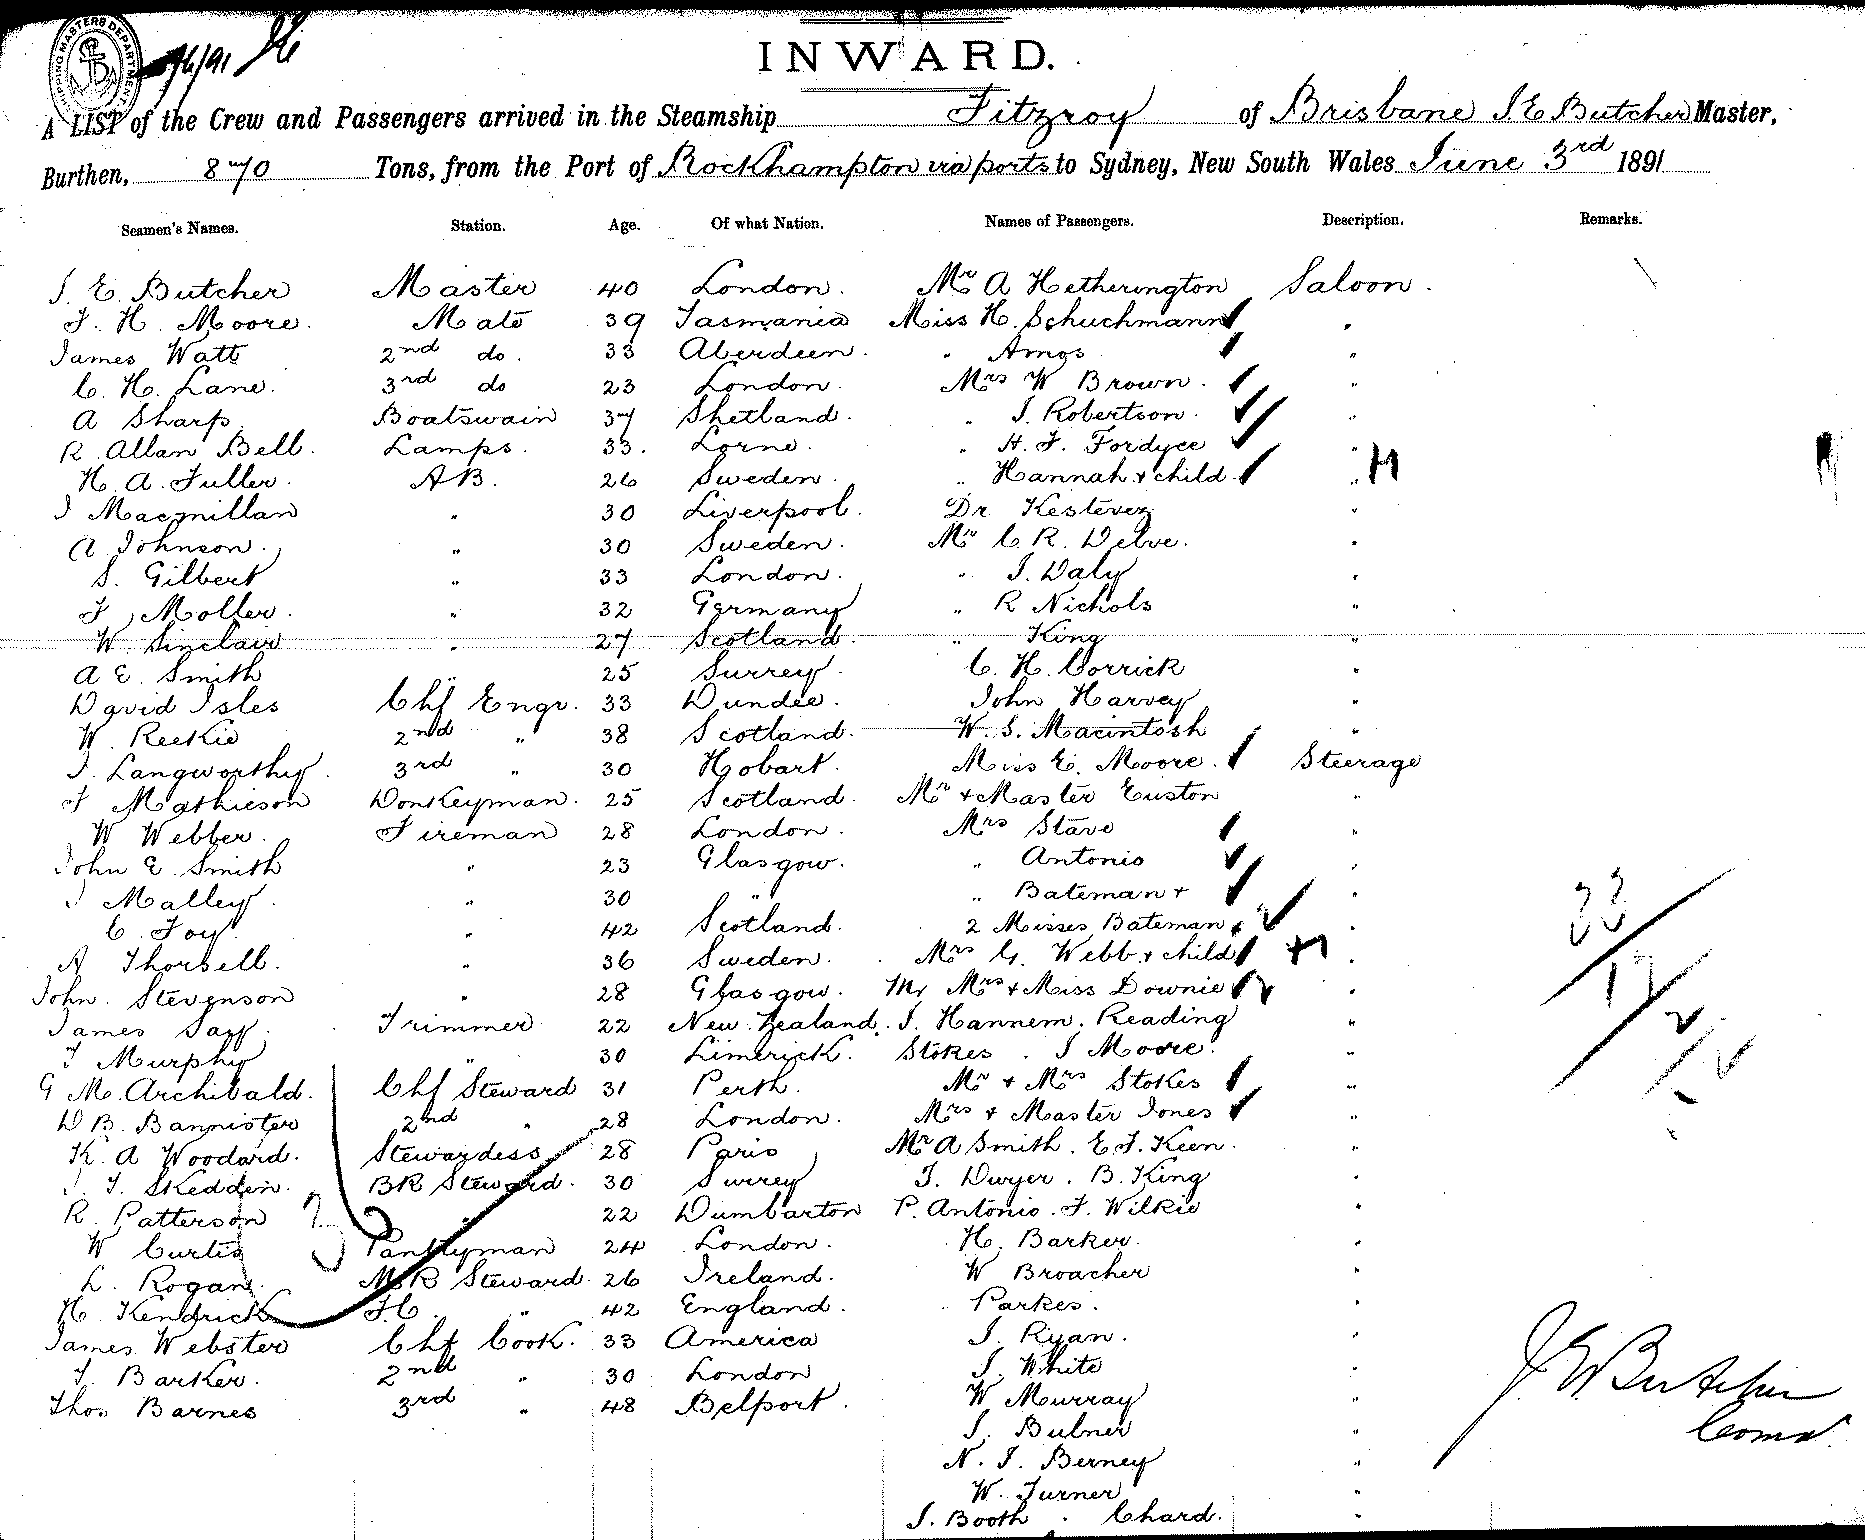 SHIPPING MASTERS DEPARTMENT
INWARD.
A LIST of the Crew and Passengers arrived in the Steamship Fitzroy of Brisbane J E Butcher Master,
Burthen, 870 Tons, from the Port of Rockhampton via ports to Sydney, New South Wales June 3rd 1891
Seamen's Names. Station. Age. Of what Nation. Names of Passengers. Description. Remarks.
J. E. Butcher Master 40 London. Mr A Hetherington Saloon.
F. H. Moore. Mate 39 Tasmania Miss H. Schuchmann "
James Watt 2nd do. 33 Aberdeen. " Amos "
C. H. Lane. 3rd do 23 London. Mrs W Brown. "
A Sharp Boatswain 37 Shetland. " J. Robertson. "
R. Allan Bell. Lamps. 33. Lorne. " H. F. Fordyce "
H. A. Fuller. AB. 26 Sweden. " Hannah & child. "
J Macmillan " 30 Liverpool. Dr Kesteven "
A Johnson. " 30 Sweden. Mr C. R. Delve. "
S. Gilbert " 33 London. " J. Daly "
F. Moller. " 32 Germany " R Nichols "
W. Sinclair " 27 Scotland. " King "
A E. Smith " 25 Surrey. C. H. Corrick "
David Isles Chf Engr. 33 Dundee. John Harvey "
W. Reekie 2nd " 38 Scotland. W. S. Macintosh "
J. Langworthy. 3rd " 30 Hobart. Miss E. Moore. Steerage
F Mathieson Donkeyman. 25 Scotland. Mr & Master Euston "
W Webber. Fireman 28 London. Mrs Stave "
John E. Smith " 23 Glasgow. " Antonio "
J Malley. " 30 " " Bateman & "
C. Foy " 42 Scotland. 2 Misses Bateman "
A Thorsell. " 36 Sweden. Mrs G. Webb & child "
John. Stevenson " 28 Glasgow. Mr Mrs & Miss Downie "
James Trimmer 22 New Zealand. J. Hannem. Reading "
T Murphy " 30 Limerick. Stokes. J Moore. "
G M. Archibald. Chf Steward 31 Perth. Mr & Mrs Stokes "
D B. Bannister 2nd " 28 London. Mrs & Master Jones "
K. A Woodard. Stewardess 28 Paris Mr A Smith. E. F. Keen. "
J. Skedden. BR Steward. 30 Surrey T. Dwyer. B. King "
R. Patterson " 22 Dumbarton P. Antonio. F. Wilkie "
W Curtis Pantryman 24 London. H. Barker. "
L. Rogan. MR Steward. 26 Ireland. W Broacher "
H. Kendrick F.C. " 42 England. Parkes. "
James Webster Chf Cook. 33 America J. Ryan. "
T. Barker. 2nd " 30 London J. White "
Thos Barnes 3rd " 48 Belport. W Murray "
J. Bulner "
N. J. Berney "
W. Turner "
J. Booth. Chard. "
J. E. Butcher
Comd.